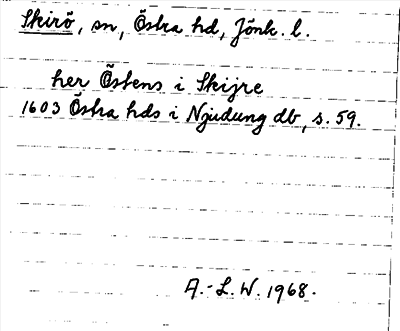 Skirö, sn, Östra hd, Jönk. l.
her Östens i Skijre
1603 Östra hds i Njudung db, s. 59.
A.-L.W. 1968.